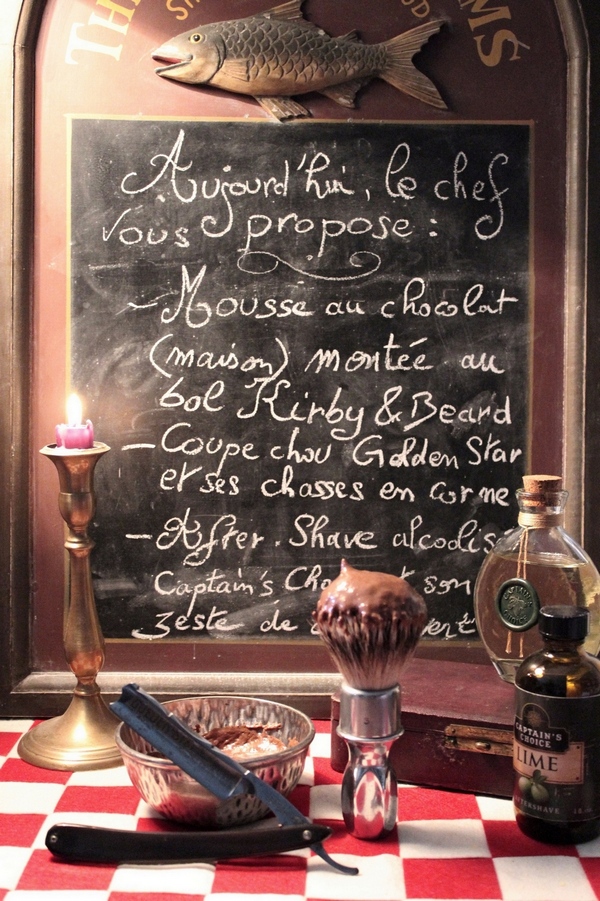 Aujourd'hui, le chef
Vous propose :
- Mousse au chocolat
(maison) montée au
bol Kirby & Beard
- Coupe chou Golden Star
et ses chasses en corne
- After. Shave
Captain's son
zeste de
CAPTAIN'S
CHOICE
LIME
AFTERSHAVE